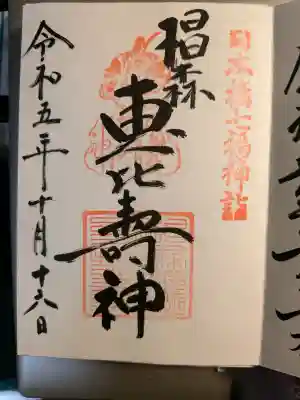 日本橋七福神詣
椙森
恵比寿神
令和五年十月十六日